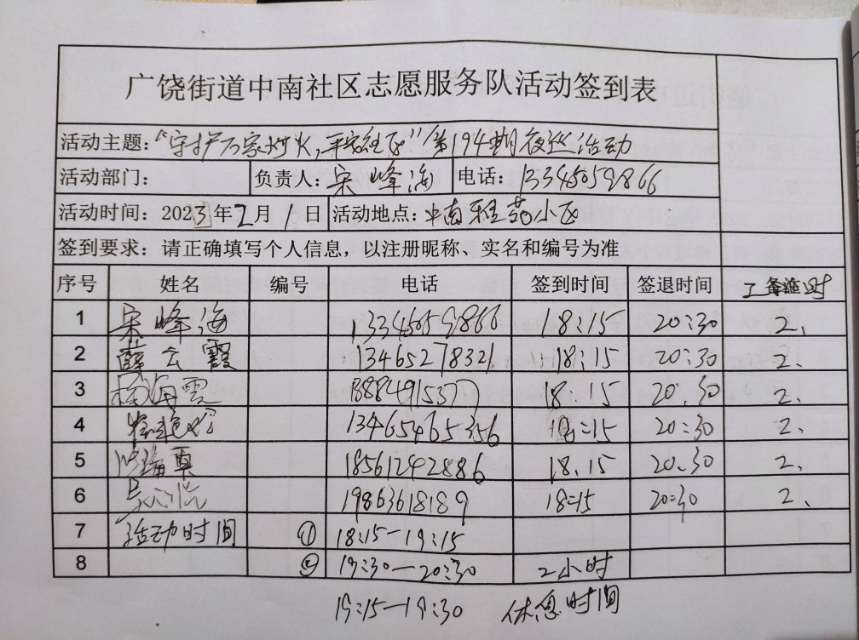 广饶街道中南社区志愿服务队活动签到表
活动主题:“守护万家灯火,平安社区”第194期夜巡活动
活动部门: 负责人:宋峰海 电话:13345059866
活动时间: 2023年2月1日 活动地点:中南雅苑小区
签到要求:请正确填写个人信息,以注册昵称、实名和编号为准
序号 姓名 编号 电话 签到时间 签退时间 工时
1 宋峰海 13345059866 18:15 20:30 2、
2 薛云霞 13465278321 18:15 20:30 2、
3 杨海霞 13884915377 18.15 20.30 2、
4 13465465356 18:15 20:30 2、
5 海真 18561242886 18.15 20.30 2、
6 19863618189 18:15 20:30 2、
7 活动时间 ① 18:15—19:15
8 ② 19:30—20:30 2小时
19:15—19:30 休息时间